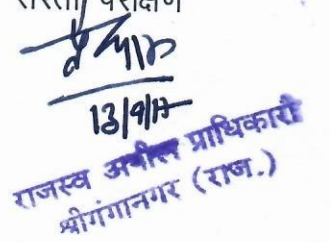 परीक्षण
13/9/17
राजस्व अपील प्राधिकारी
श्रीगंगानगर (राज.)